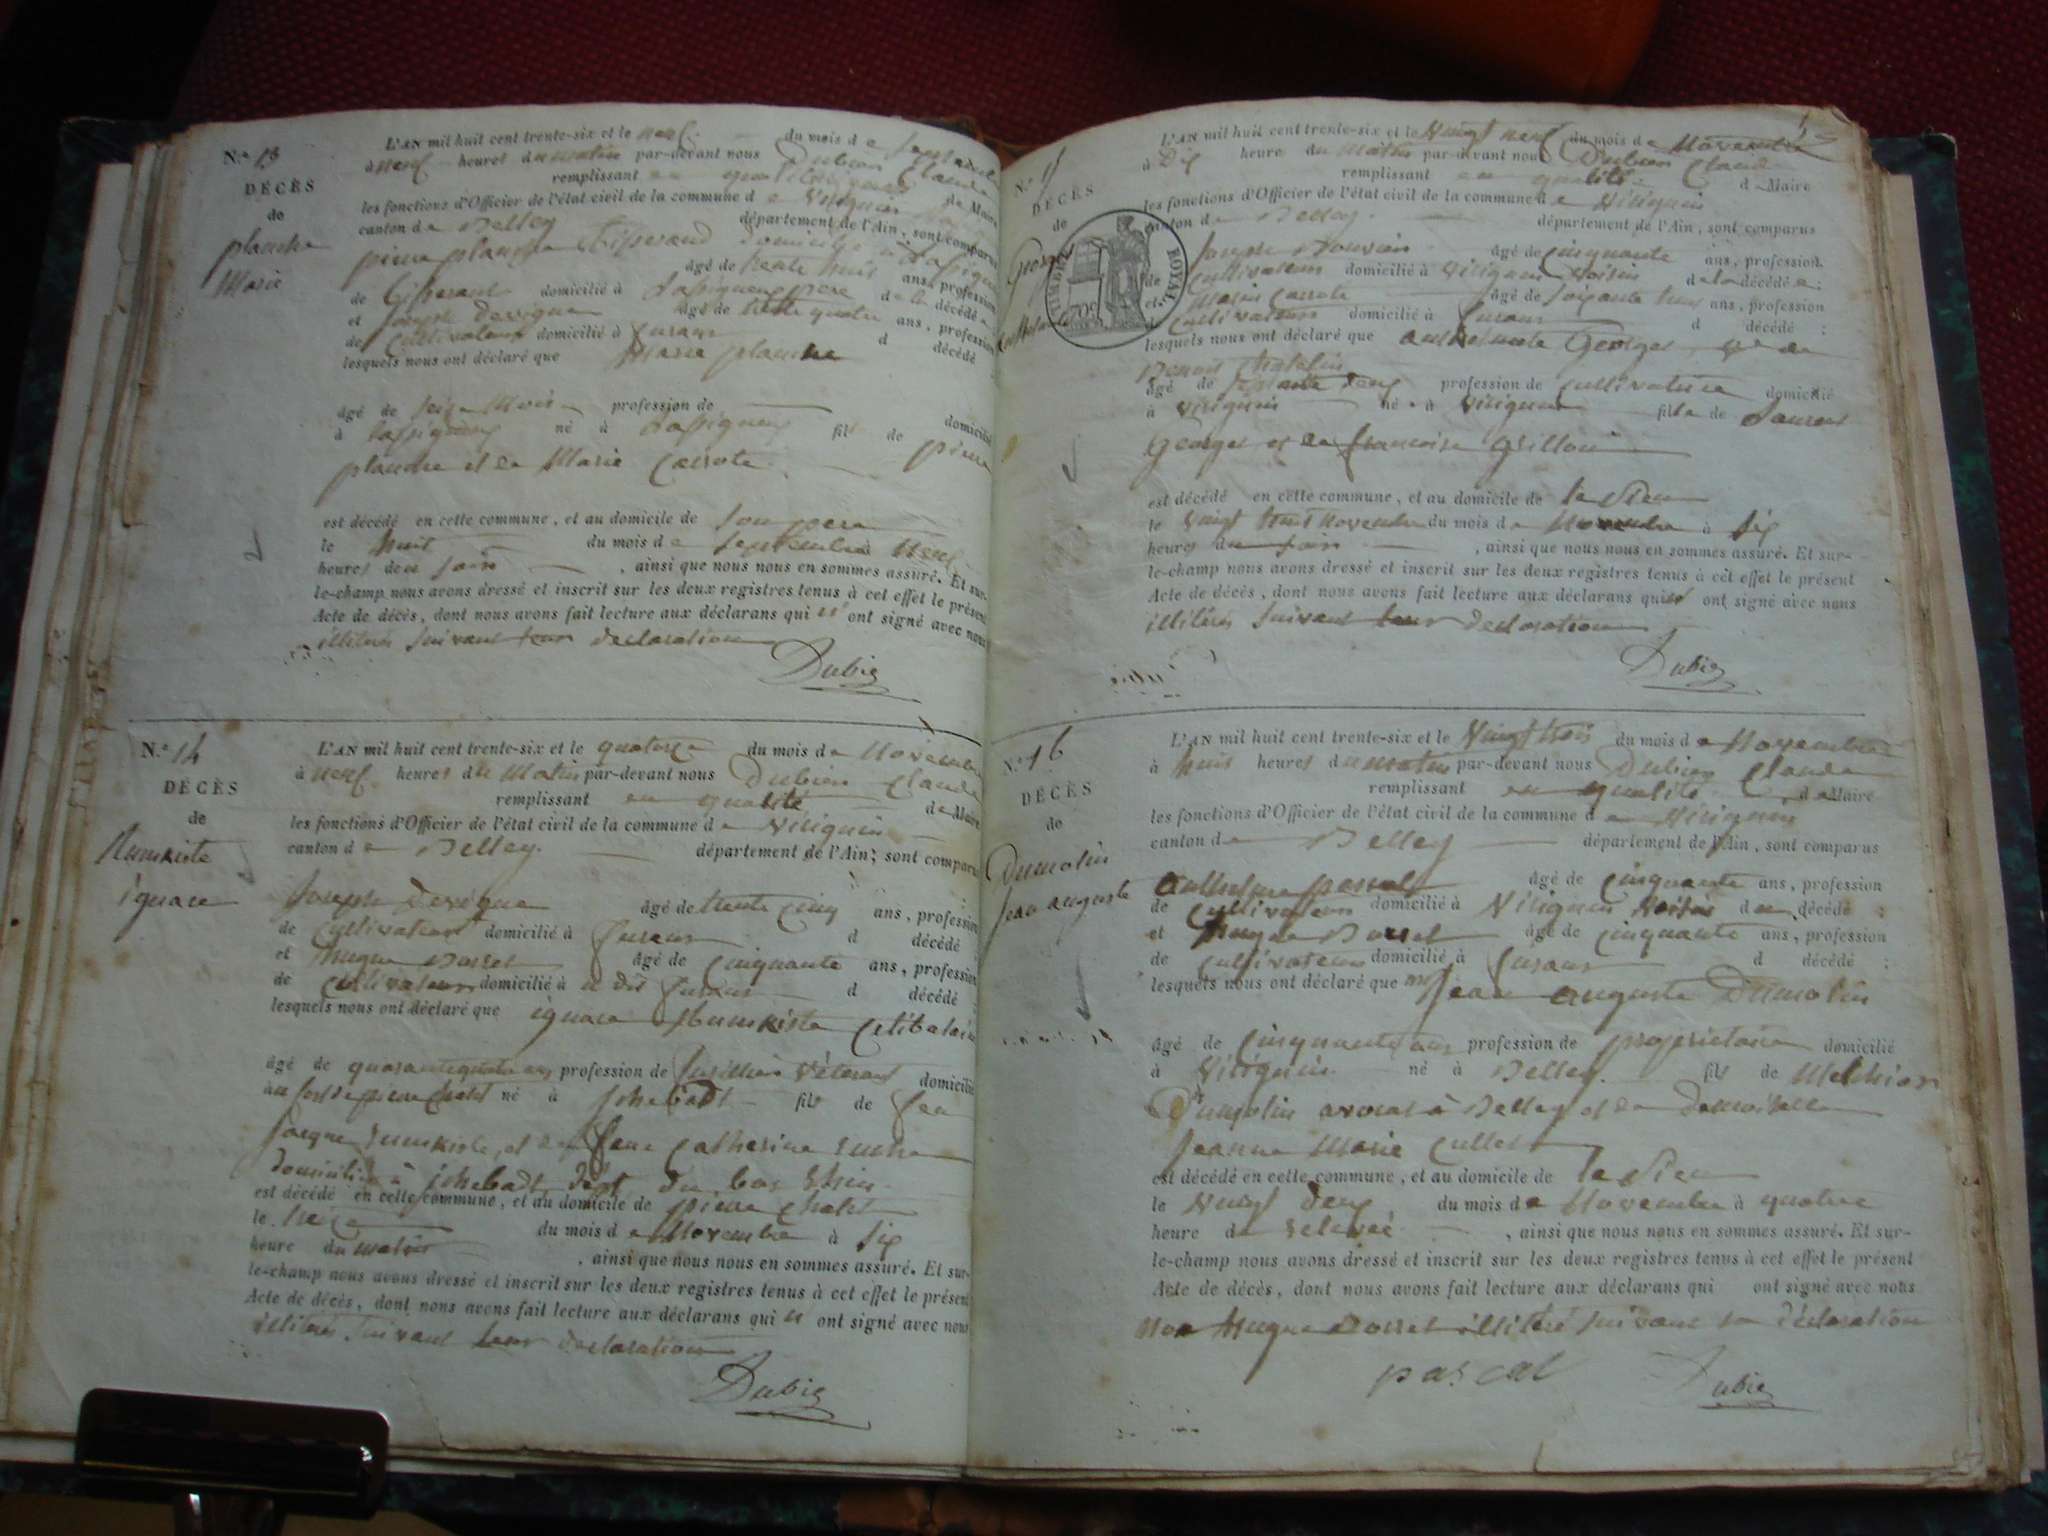 N.° 13
DÉCÈS
de
planche
Marie
L'AN mil huit cent trente-six et le neuf du mois de septembre
à neuf heures du matin par-devant nous Dubien Claude
remplissant en qualité de Maire
les fonctions d'Officier de l'état civil de la commune de Virignin
canton de Belley département de l'Ain, sont comparus
pierre planche tisserand domicilié à
âgé de trente huit ans, profession
de tisserand domicilié à père de la décédée
et joseph âgé de trente quatre ans, profession
de cultivateur domicilié à d décédé
lesquels nous ont déclaré que Marie planche
âgé de seize Mois profession de domicilié
à né à fils de pierre
planche et de Marie
est décédé en cette commune, et au domicile de son père
le huit du mois de septembre neuf
heures du soir, ainsi que nous nous en sommes assuré. Et sur-
le-champ nous avons dressé et inscrit sur les deux registres tenus à cet effet le présent
Acte de décès, dont nous avons fait lecture aux déclarans qui n' ont signé avec nous
illitérés suivant leur declaration
Dubien
N.° 14
DÉCÈS
de
ignace
L'AN mil huit cent trente-six et le quatorze du mois de Novembre
à neuf heures du Matin par-devant nous Dubien Claude
remplissant en qualité de Maire
les fonctions d'Officier de l'état civil de la commune de Virignin
canton de Belley département de l'Ain; sont comparus
Joseph âgé de trente cinq ans, profession
de cultivateur domicilié à d décédé :
et hugue âgé de cinquante ans, profession
de cultivateur domicilié à d décédé :
lesquels nous ont déclaré que ignace
âgé de quarantequatre ans profession de fusillier vétérant domicilié
au fort de pierre chatel né à fils de feu
Jacque et de feue Catherine
domiciliés à dépt du bas Rhin
est décédé en cette commune, et au domicile de pierre chatel
le treize du mois de Novembre à six
heure du matin, ainsi que nous nous en sommes assuré. Et sur-
le-champ nous avons dressé et inscrit sur les deux registres tenus à cet effet le présent
Acte de décès, dont nous avons fait lecture aux déclarans qui n' ont signé avec nous
illitérés suivant leur declaration
Dubien
N.° 15
DÉCÈS
de
TIMBRE ROYAL
L'AN mil huit cent trente-six et le Vingt neuf du mois de Novembre
à Dix heure du Matin par-devant nous Dubien Claude
remplissant en qualité d Maire
les fonctions d'Officier de l'état civil de la commune de Virignin
canton de Belley département de l'Ain, sont comparus
Joseph âgé de cinquante ans, profession
de cultivateur domicilié à Virignin Voisin de la décédée :
et âgé de soixante ans, profession
d cultivateur domicilié à d décédé :
lesquels nous ont déclaré que Georges
âgé de septante deux profession de cultivatrice domicilié
à Virignin né à Virignin fille de Laurent
Georges et de francoise Grillon
est décédé en cette commune, et au domicile de le sien
le vingt huit Novembre du mois de Novembre à six
heures du soir, ainsi que nous nous en sommes assuré. Et sur-
le-champ nous avons dressé et inscrit sur les deux registres tenus à cet effet le présent
Acte de décès, dont nous avons fait lecture aux déclarans qui n' ont signé avec nous
illitérés suivant leur declaration
Dubien
N.° 16
DÉCÈS
de
Dumolin
Jean auguste
L'AN mil huit cent trente-six et le Vingt trois du mois de Novembre
à huit heures du matin par-devant nous Dubien Claude
remplissant en qualité de Maire
les fonctions d'Officier de l'état civil de la commune de Virignin
canton de Belley département de l'Ain, sont comparus
âgé de cinquante ans, profession
de cultivateur domicilié à Virignin Voisin du décédé :
et hugue âgé de cinquante ans, profession
de cultivateur domicilié à d décédé :
lesquels nous ont déclaré que mr Jean auguste Dumolin
âgé de cinquante ans profession de propriétaire domicilié
à Virignin né à Belley fils de Melchior
Dumolin avocat à Belley et de demoiselle
Jeanne Marie Cullet
est décédé en cette commune, et au domicile de le sien
le Vingt deux du mois de Novembre à quatre
heure de relevée, ainsi que nous nous en sommes assuré. Et sur-
le-champ nous avons dressé et inscrit sur les deux registres tenus à cet effet le présent
Acte de décès, dont nous avons fait lecture aux déclarans qui ont signé avec nous
non hugue illitéré suivant sa déclaration
pascal Dubien